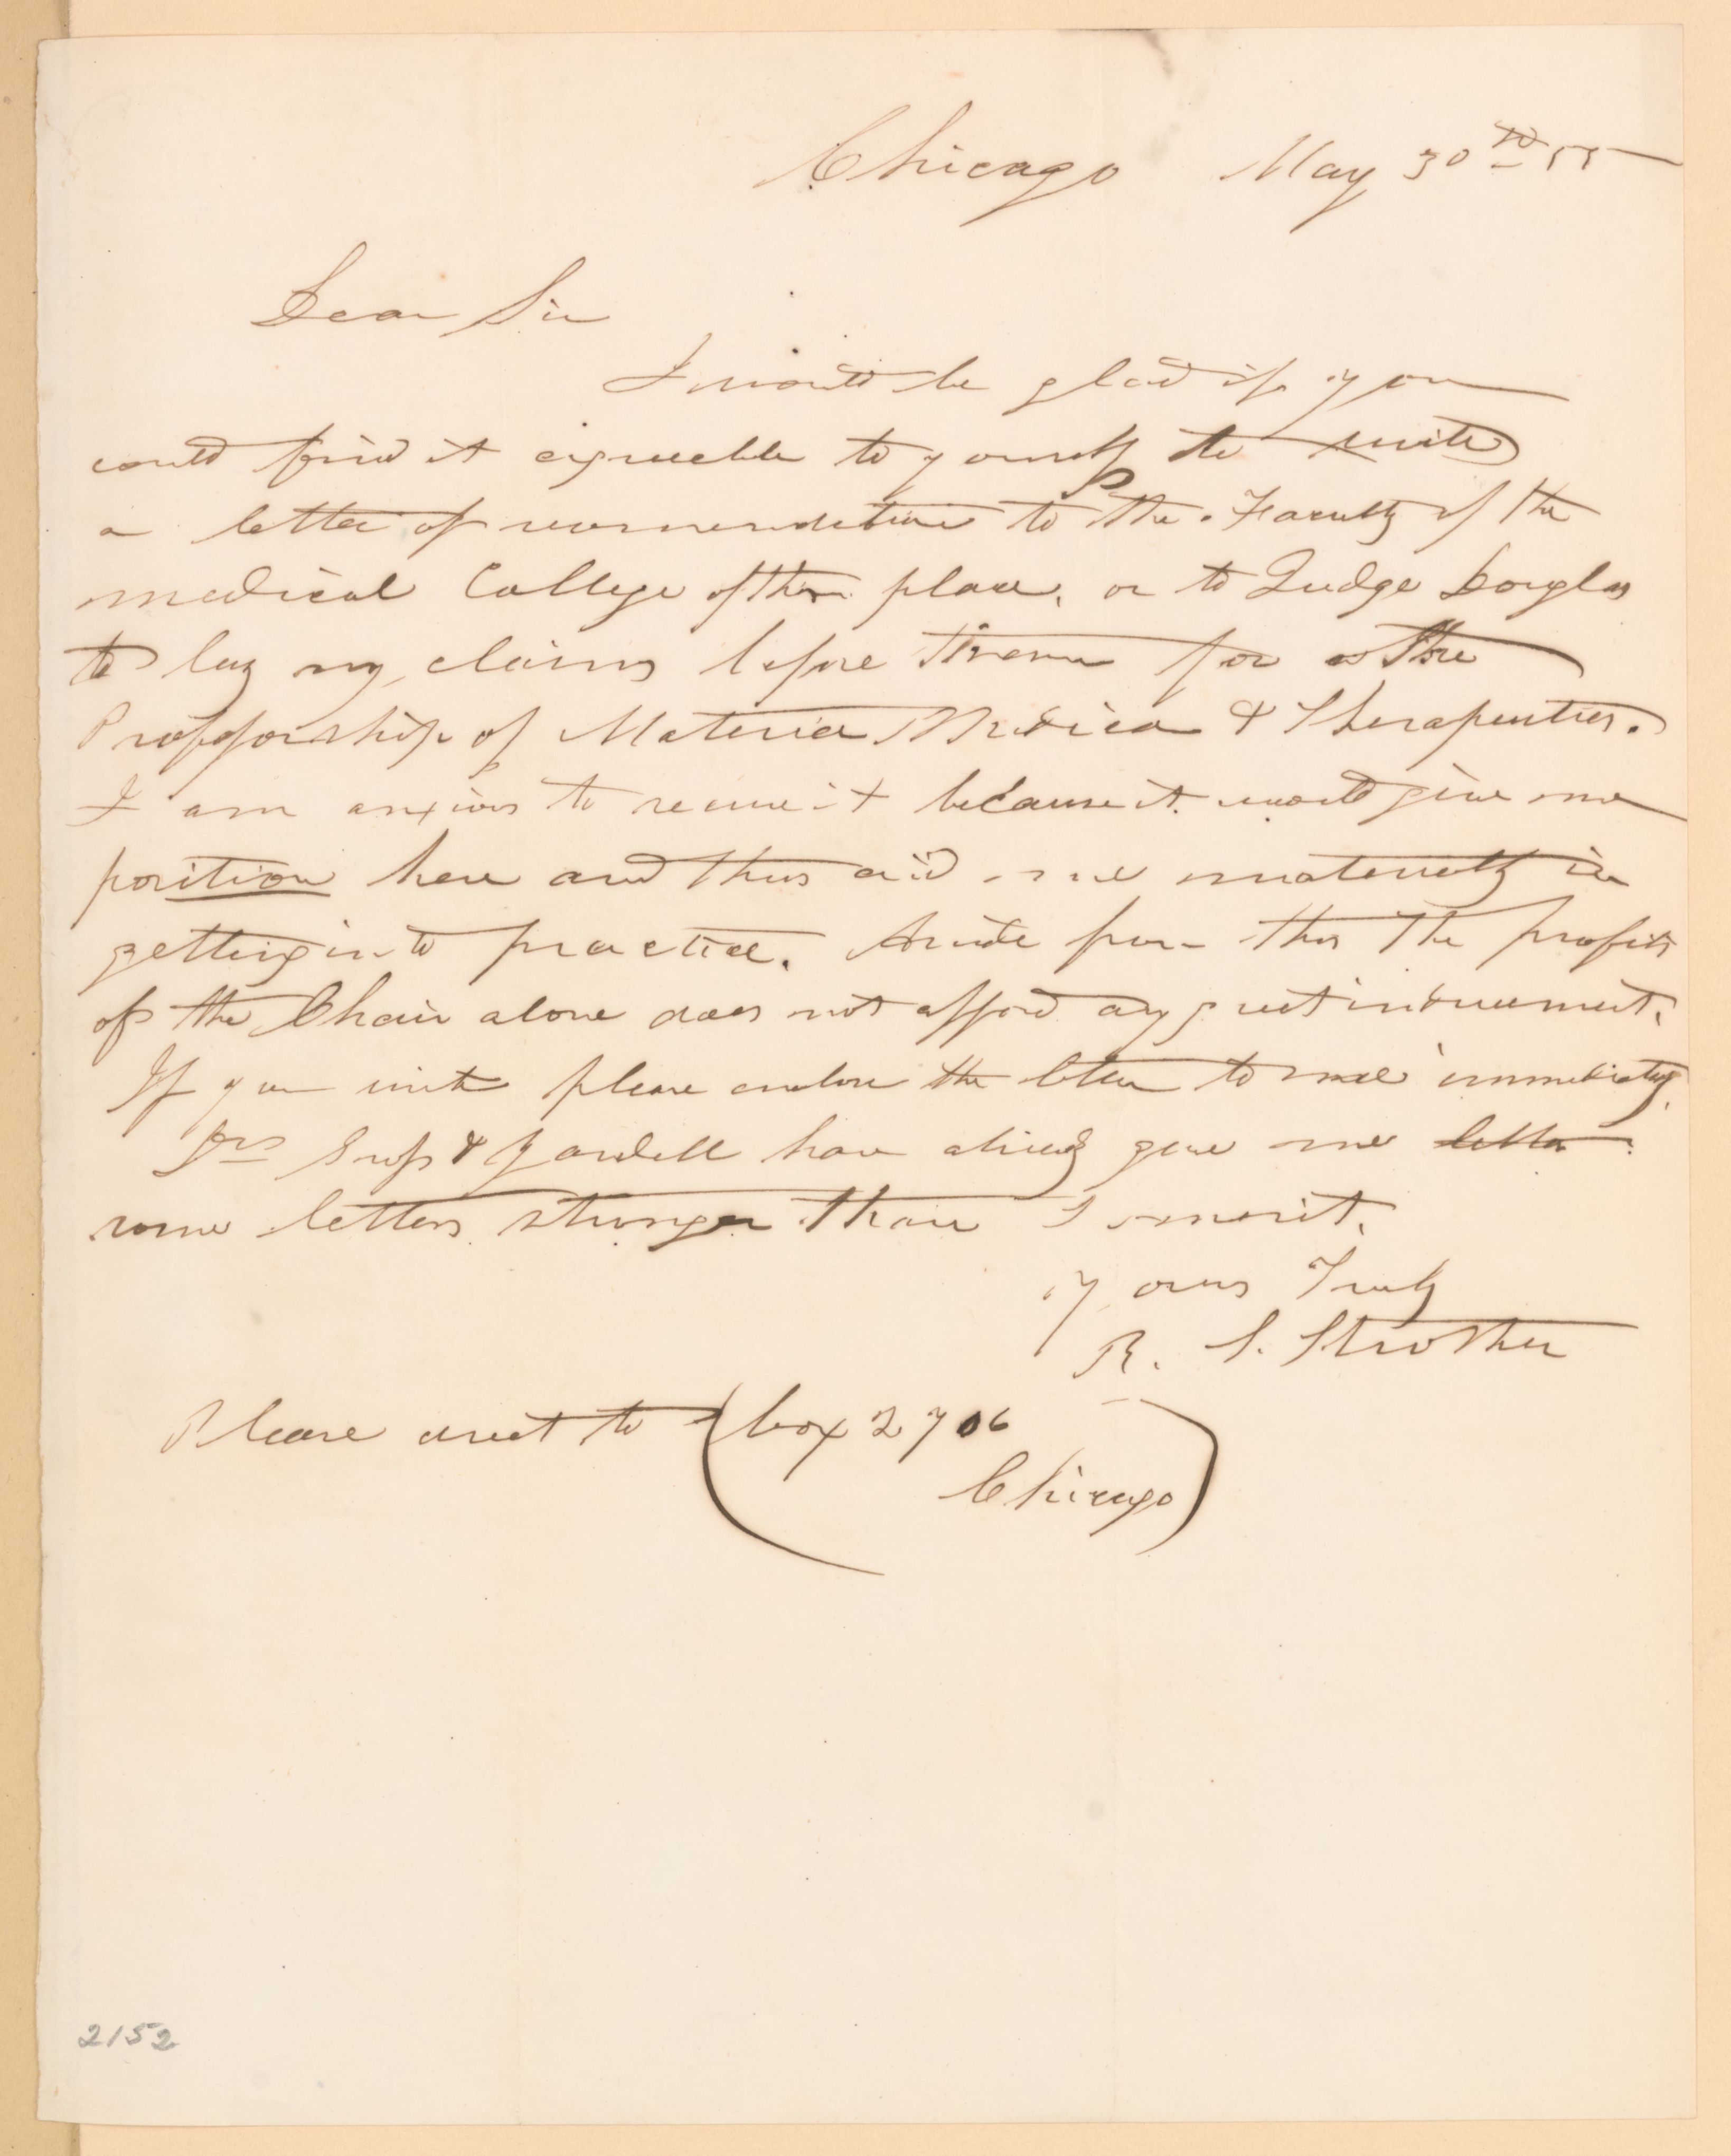 Chicago May 30th 55
Dear Sir
I would be glad if you
could find it agreeable to yourself to write
a letter of recommendation to the Faculty of the
medical College of this place, or to Judge Douglas
to lay my claims before them for the
Professorship of Materia Medica & Therapeutics.
I am anxious to secure it because it would give me
position here and thus aid me materially in
getting into practice. Aside from this the profits
of the Chair alone does not afford any great inducement.
If you write please enclose the letter to me immediately.
Drs & Yandell have already gave me letter
some letters stronger than I merit.
Yours Truly
R. S. Strother
Please direct to (box 2706
Chicago)
2152